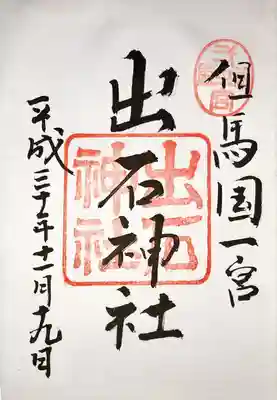 但馬国一宮
出石神社
出石神社
平成三十年十一月十九日